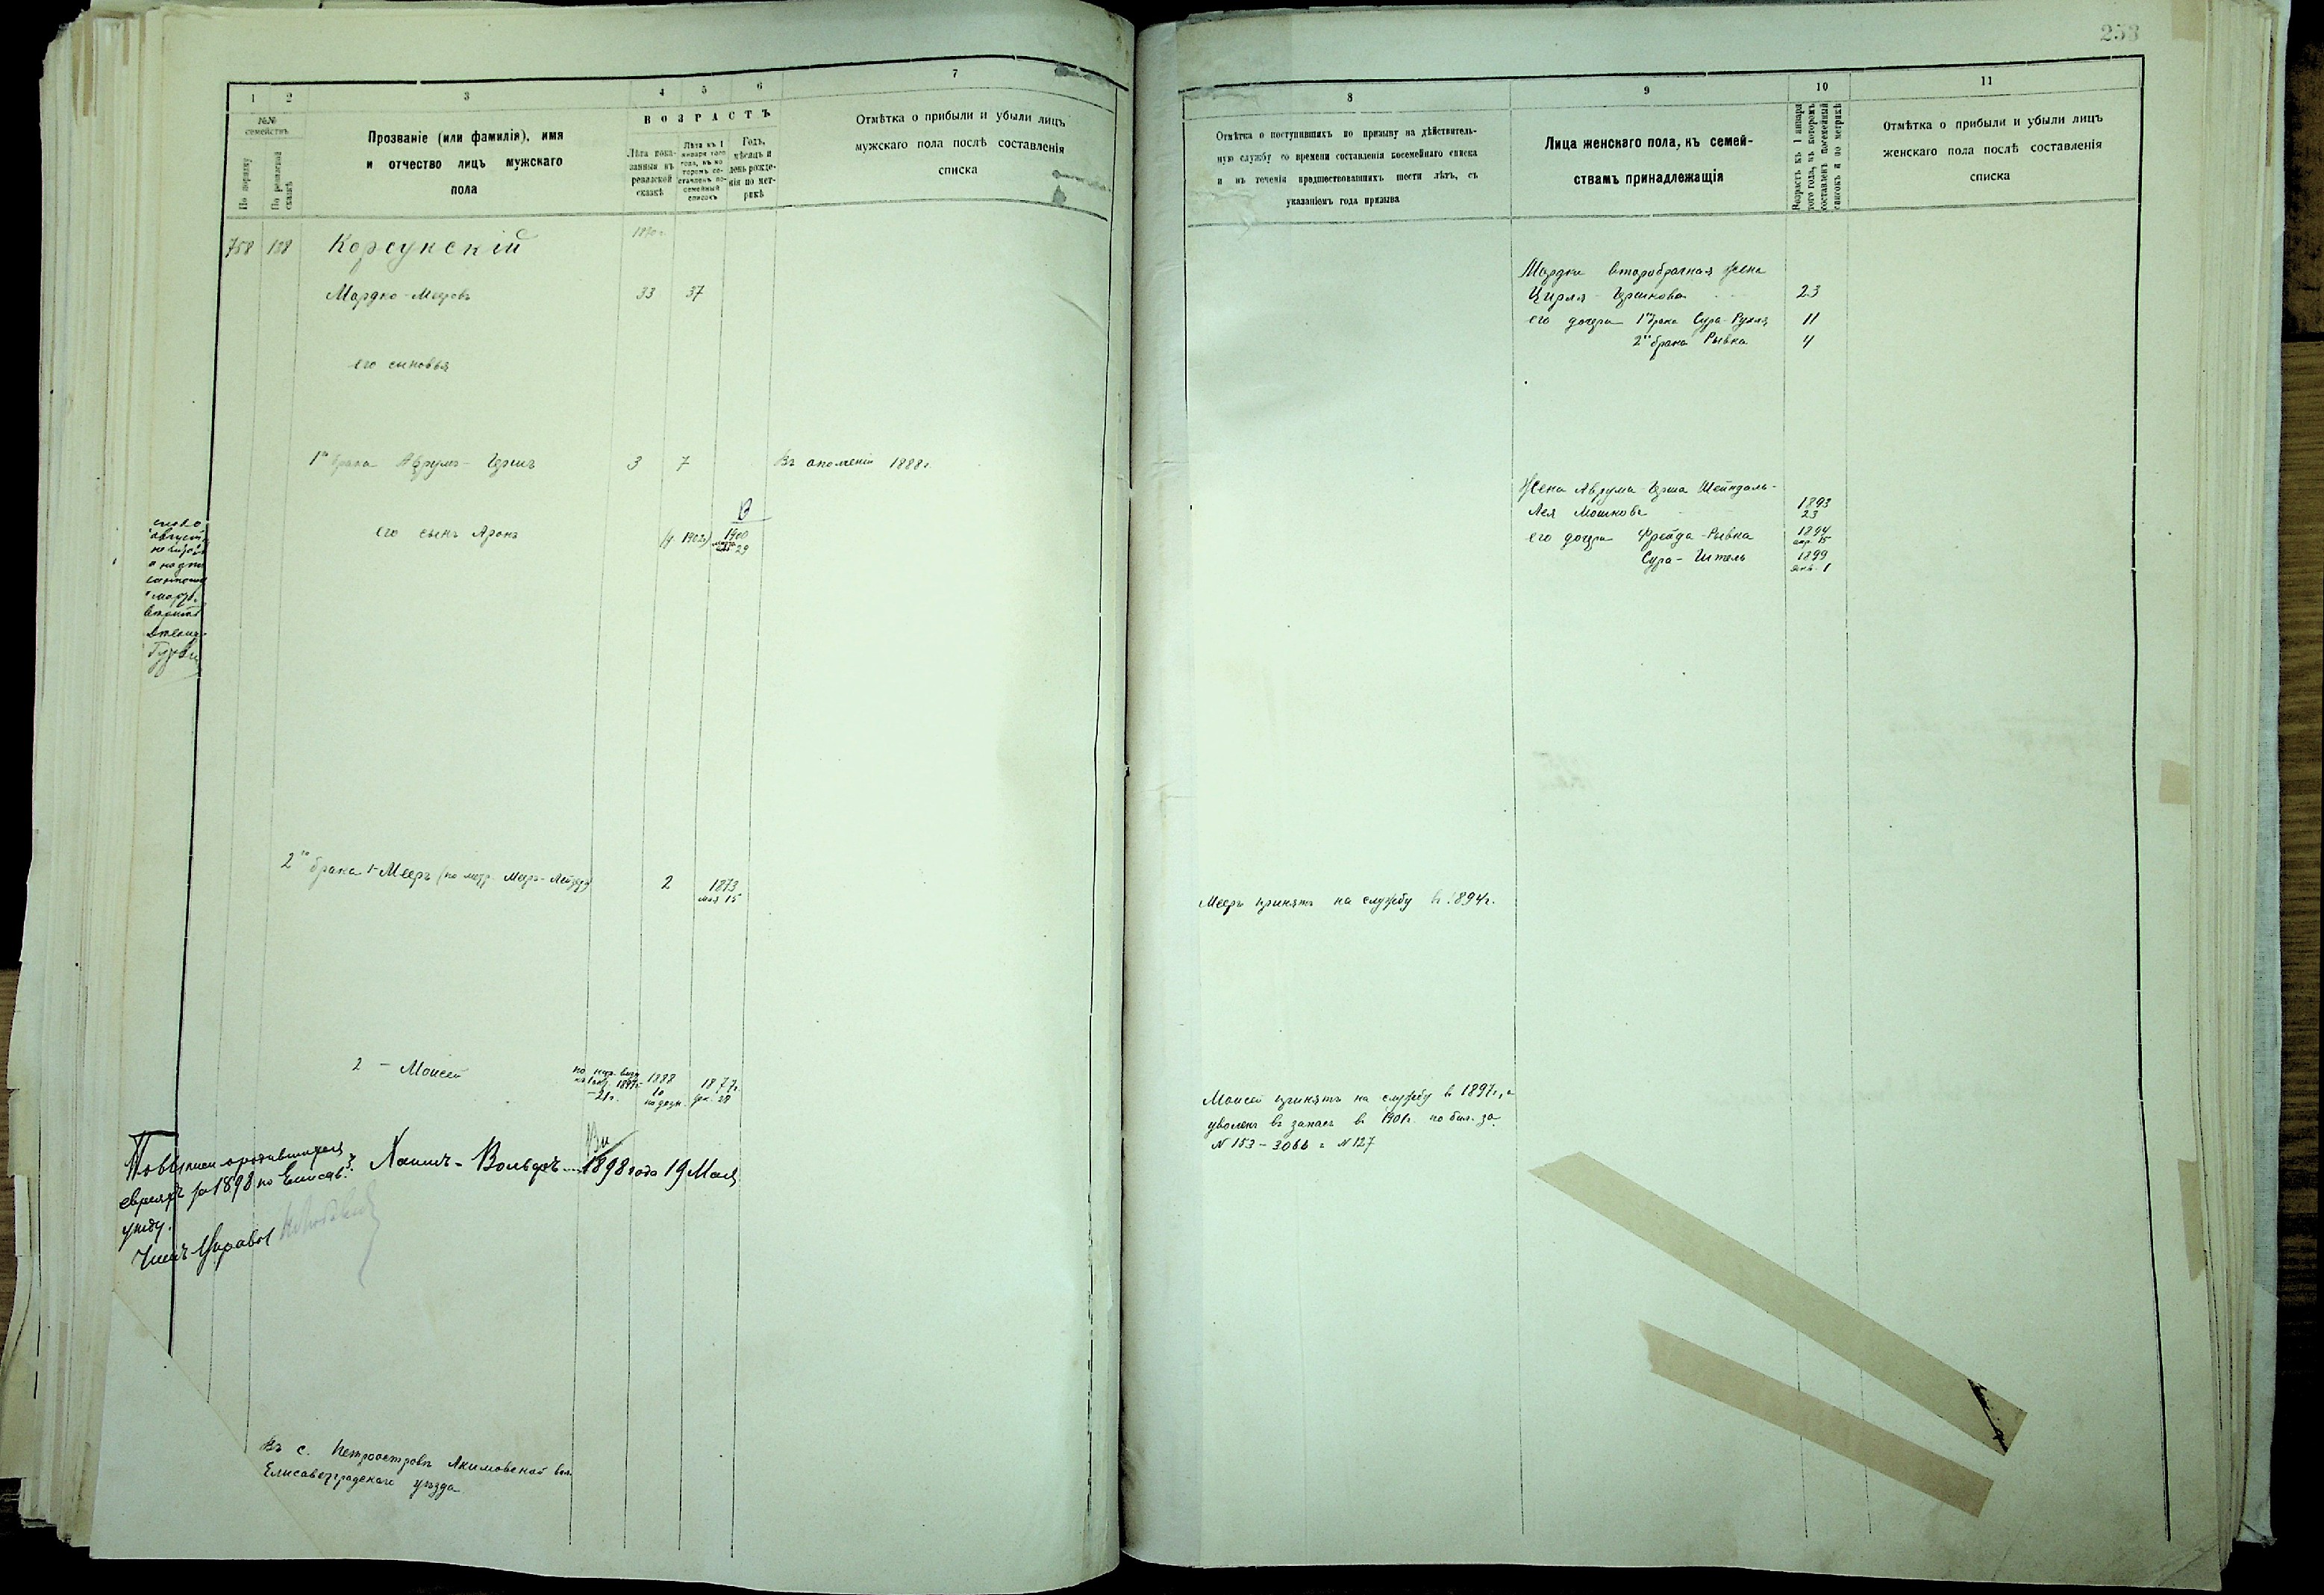 1 2 3 4 5 6 7
№№ семействъ
По порядку
По ревизской сказкѣ
Прозваніе (или фамилія), имя
и отчество лицъ мужскаго
пола
ВОЗРАСТЪ
Лѣта пока-
занныя въ
ревизской
сказкѣ
Лѣта къ 1
января того
года, въ ко-
торомъ со-
ставленъ по-
семейный
списокъ
Годъ,
мѣсяцъ и
день рожде-
нія по мет-
рикѣ
Отмѣтка о прибыли и убыли лицъ
мужскаго пола послѣ составленія
списка
758 138 Корсунскій 1870 г.
Мордко-Мееровъ 33 37
его сыновья
1го брака Аврумъ-Гершъ 3 7 Въ ополченіи 1888 г.
его сынъ Аронъ (ч. 1902 г.) 1900
29
2го брака 1-Мееръ (по метр. Мееръ-Лейзеръ) 2 1873
мая 15
2 - Моисей 1888 1877 г.
дек. 28
евреяхъ за 1898 по Елисав.
уѣзду.
Членъ Управы
Хаимъ-Вольфъ 1898 года 19 Мая
Въ с. Петроостровъ Акимовской вол.
Елисаветградскаго уѣзда
253
8 9 10 11
Отмѣтка о поступившихъ по призыву на дѣйствитель-
ную службу со времени составленія посемейнаго списка
и въ теченіи предшествовавшихъ шести лѣтъ, съ
указаніемъ года призыва
Лица женскаго пола, къ семей-
ствамъ принадлежащія
Возрастъ къ 1 января
того года, въ которомъ
составленъ посемейный
списокъ и по метрикѣ
Отмѣтка о прибыли и убыли лицъ
женскаго пола послѣ составленія
списка
Мордки второбрачная жена
Цирля Гершкова 23
его дочери 1го брака Сура-Рухля 11
2го брака Рывка 4
Жена Аврума-Герша Шейндаль-
Лея Мошкова 1893
23
его дочери Фрейда-Рывка 1894
апр. 15
Сура-Итель 1899
янв. 1
Мееръ принятъ на службу въ 1894 г.
Моисей принятъ на службу в 1897 г., и
уволенъ въ запасъ в 1901 г. по бил. за
N 153-3066 и N 127